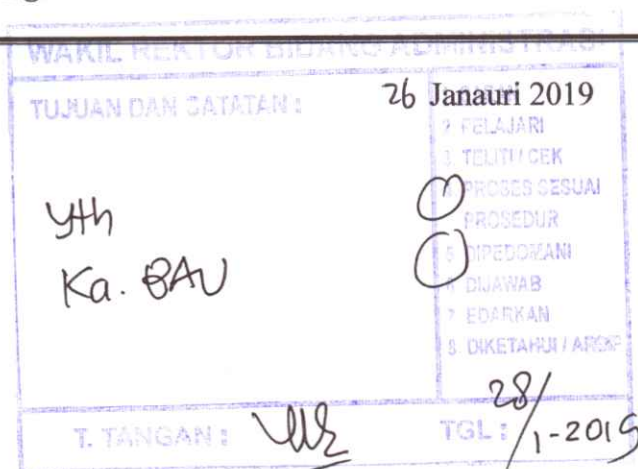 WAKIL REKTOR BIDANG ADMINISTRASI
TUJUAN DAN CATATAN :
26 Janauri 2019
2. PELAJARI
3. TELITI / CEK
4. PROSES SESUAI
PROSEDUR
5. DIPEDOMANI
6. DIJAWAB
7. EDARKAN
8. DIKETAHUI / ARSIP
Yth
Ka. BAU
T. TANGAN :
TGL : 28/1-2019